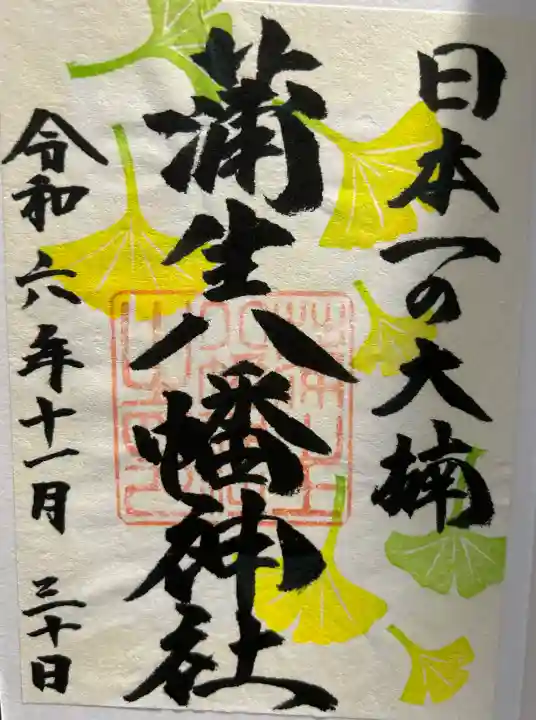 日本一の大楠
蒲生八幡神社
令和六年十一月三十日